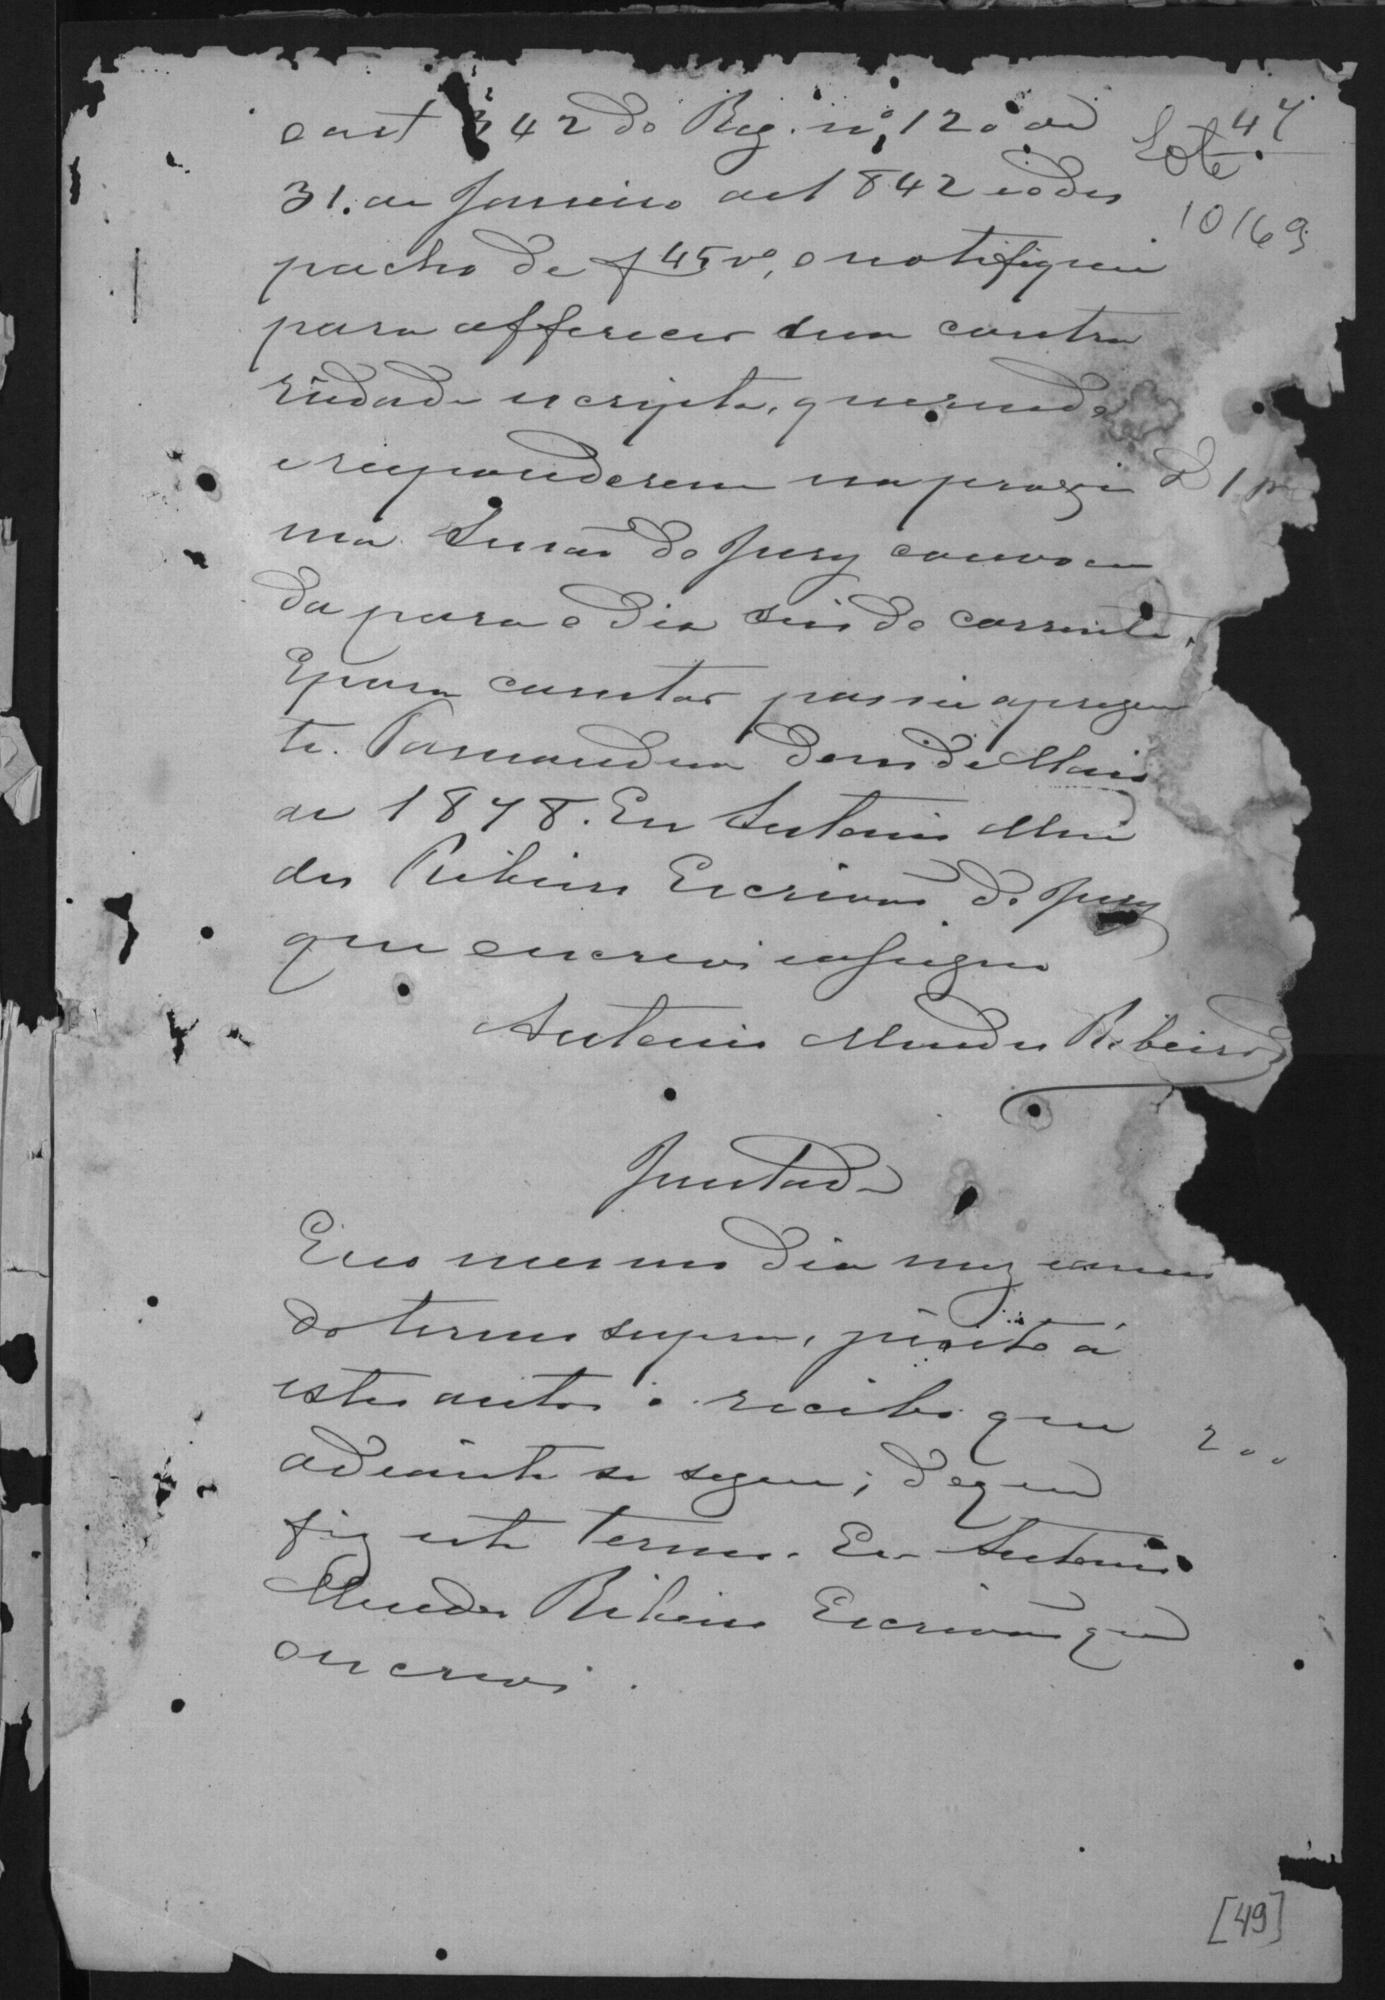 47
Lobo
10169
o art 342 do Reg. nº 120 de
31. de Janeiro de 1842 e o des
pacho de f 45 vº, e notifiquei
para offerecer sua contra
riedade escripta, querendo
e responderem na proxi
ma Sessão do Jury convoca
da para o dia seis do corrente.
E para constar passei a prezen
te. Parnandua dous de Maio
de 1878. Eu Antonio Men
des Ribeiro Escrivão do Jury
que escrevi e assigno
Antonio Mendes Ribeiro
Juntada
E no mesmo dia mez e anno
do termo supra, junto á
estes autos o recibo que
200
adeiante se segue; do que
fiz este termo. Eu Antonio
Mendes Ribeiro Escrivão que
o escrevi.
[49]